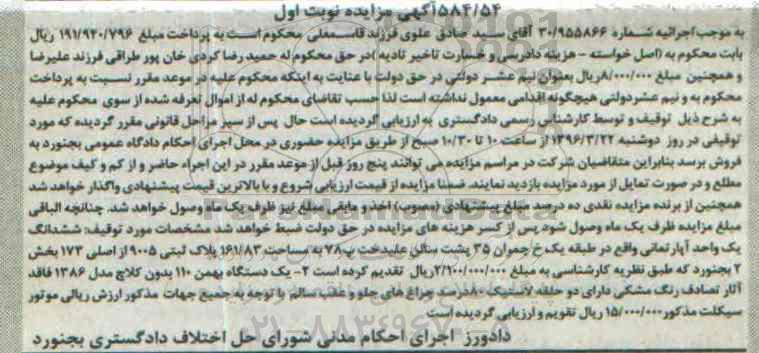 ۵۸۴/۵۴ آگهی مزایده نوبت اول
به موجب اجرائیه شماره ۳۰/۹۵۵۸۶۶ آقای سید صادق علوی فرزند قاسمعلی محکوم است به پرداخت مبلغ ۱۹۱/۹۲۰/۷۹۶ ریال
بابت محکوم به (اصل خواسته - هزینه دادرسی و خسارت تاخیر تادیه) در حق محکوم له حمید رضا کردی خان پور طراقی فرزند علیرضا
و همچنین مبلغ ۸/۰۰۰/۰۰۰ریال بعنوان نیم عشر دولتی در حق دولت با عنایت به اینکه محکوم علیه در موعد مقرر نسبت به پرداخت
محکوم به و نیم عشر دولتی هیچگونه اقدامی معمول نداشته است لذا حسب تقاضای محکوم له از اموال تعرفه شده از سوی محکوم علیه
به شرح ذیل توقیف و توسط کارشناس رسمی دادگستری به ارزیابی گردیده است حال پس از سیر مراحل قانونی مقرر گردیده که مورد
توقیفی در روز دوشنبه ۱۳۹۶/۳/۲۲ از ساعت ۱۰ تا ۱۰/۳۰ صبح از طریق مزایده حضوری در محل اجرای احکام دادگاه عمومی بجنورد به
فروش برسد بنابراین متقاضیان شرکت در مراسم مزایده می توانند پنج روز قبل از موعد مقرر در این اجراء حاضر و از کم و کیف موضوع
مطلع و در صورت تمایل از مورد مزایده بازدید نمایند. ضمنا مزایده از قیمت ارزیابی شروع و با بالاترین قیمت پیشنهادی واگذار خواهد شد
همچنین از برنده مزایده نقدی ده درصد مبلغ پیشنهادی (مصوب) اخذ و مابقی مبلغ نیز ظرف یک ماه وصول خواهد شد. چنانچه الباقی
مبلغ مزایده ظرف یک ماه وصول شود پس از کسر هزینه های مزایده در حق دولت ضبط خواهد شد مشخصات مورد توقیف: ششدانگ
یک واحد آپارتمانی واقع در طبقه یک خ چمران ۳۵ پشت سالن علیدخت پ۷۸ به مساحت ۱۶۱/۸۳ پلاک ثبتی ۹۰۰۵ از اصلی ۱۷۳ بخش
۲ بجنورد که طبق نظریه کارشناسی به مبلغ ۲/۱۰۰/۰۰۰/۰۰۰ریال تقدیم کرده است ۲- یک دستگاه بهمن ۱۱۰ بدون کلاچ مدل ۱۳۸۶ فاقد
آثار تصادف رنگ مشکی دارای دو حلقه لاستیک ۸۰درصد چراغ های جلو و عقب سالم با توجه به جمیع جهات مذکور ارزش ریالی موتور
سیکلت مذکور ۱۵/۰۰۰/۰۰۰ ریال تقویم و ارزیابی گردیده است
دادورز اجرای احکام مدنی شورای حل اختلاف دادگستری بجنورد
ParsNamadData
۰۲۱-۸۸۳۴۹۶۷۰-۸